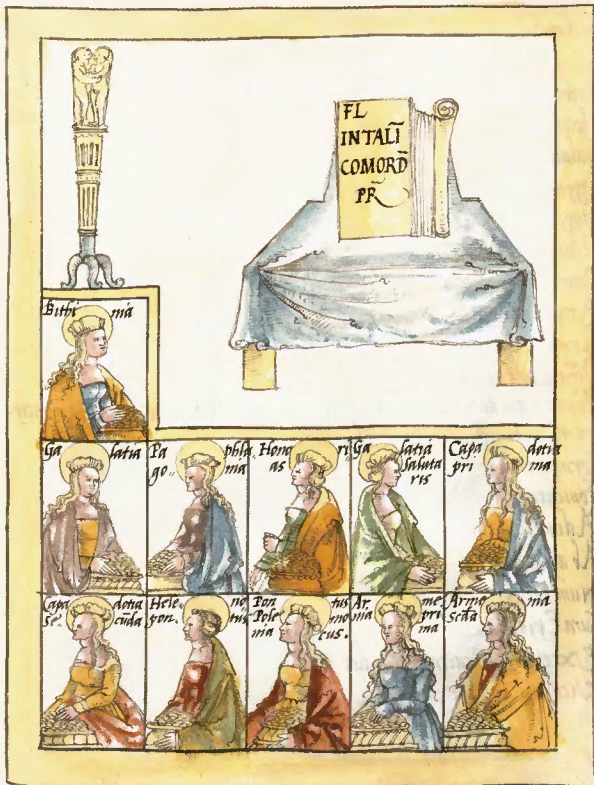 FL
INTALĪ
COMORD̄
PR̄
Bithi nia
Ga latia
Pa phla
go.. nia
Hono ri
as
Ga latia
saluta
ris
Capa dotia
pri ma
Capa dotia
se. cūda
Hele no
pon. tus
Pon tus
Pole mo
nia cus.
Ar me
nia pri
ma
Arme nia
Scd̄a